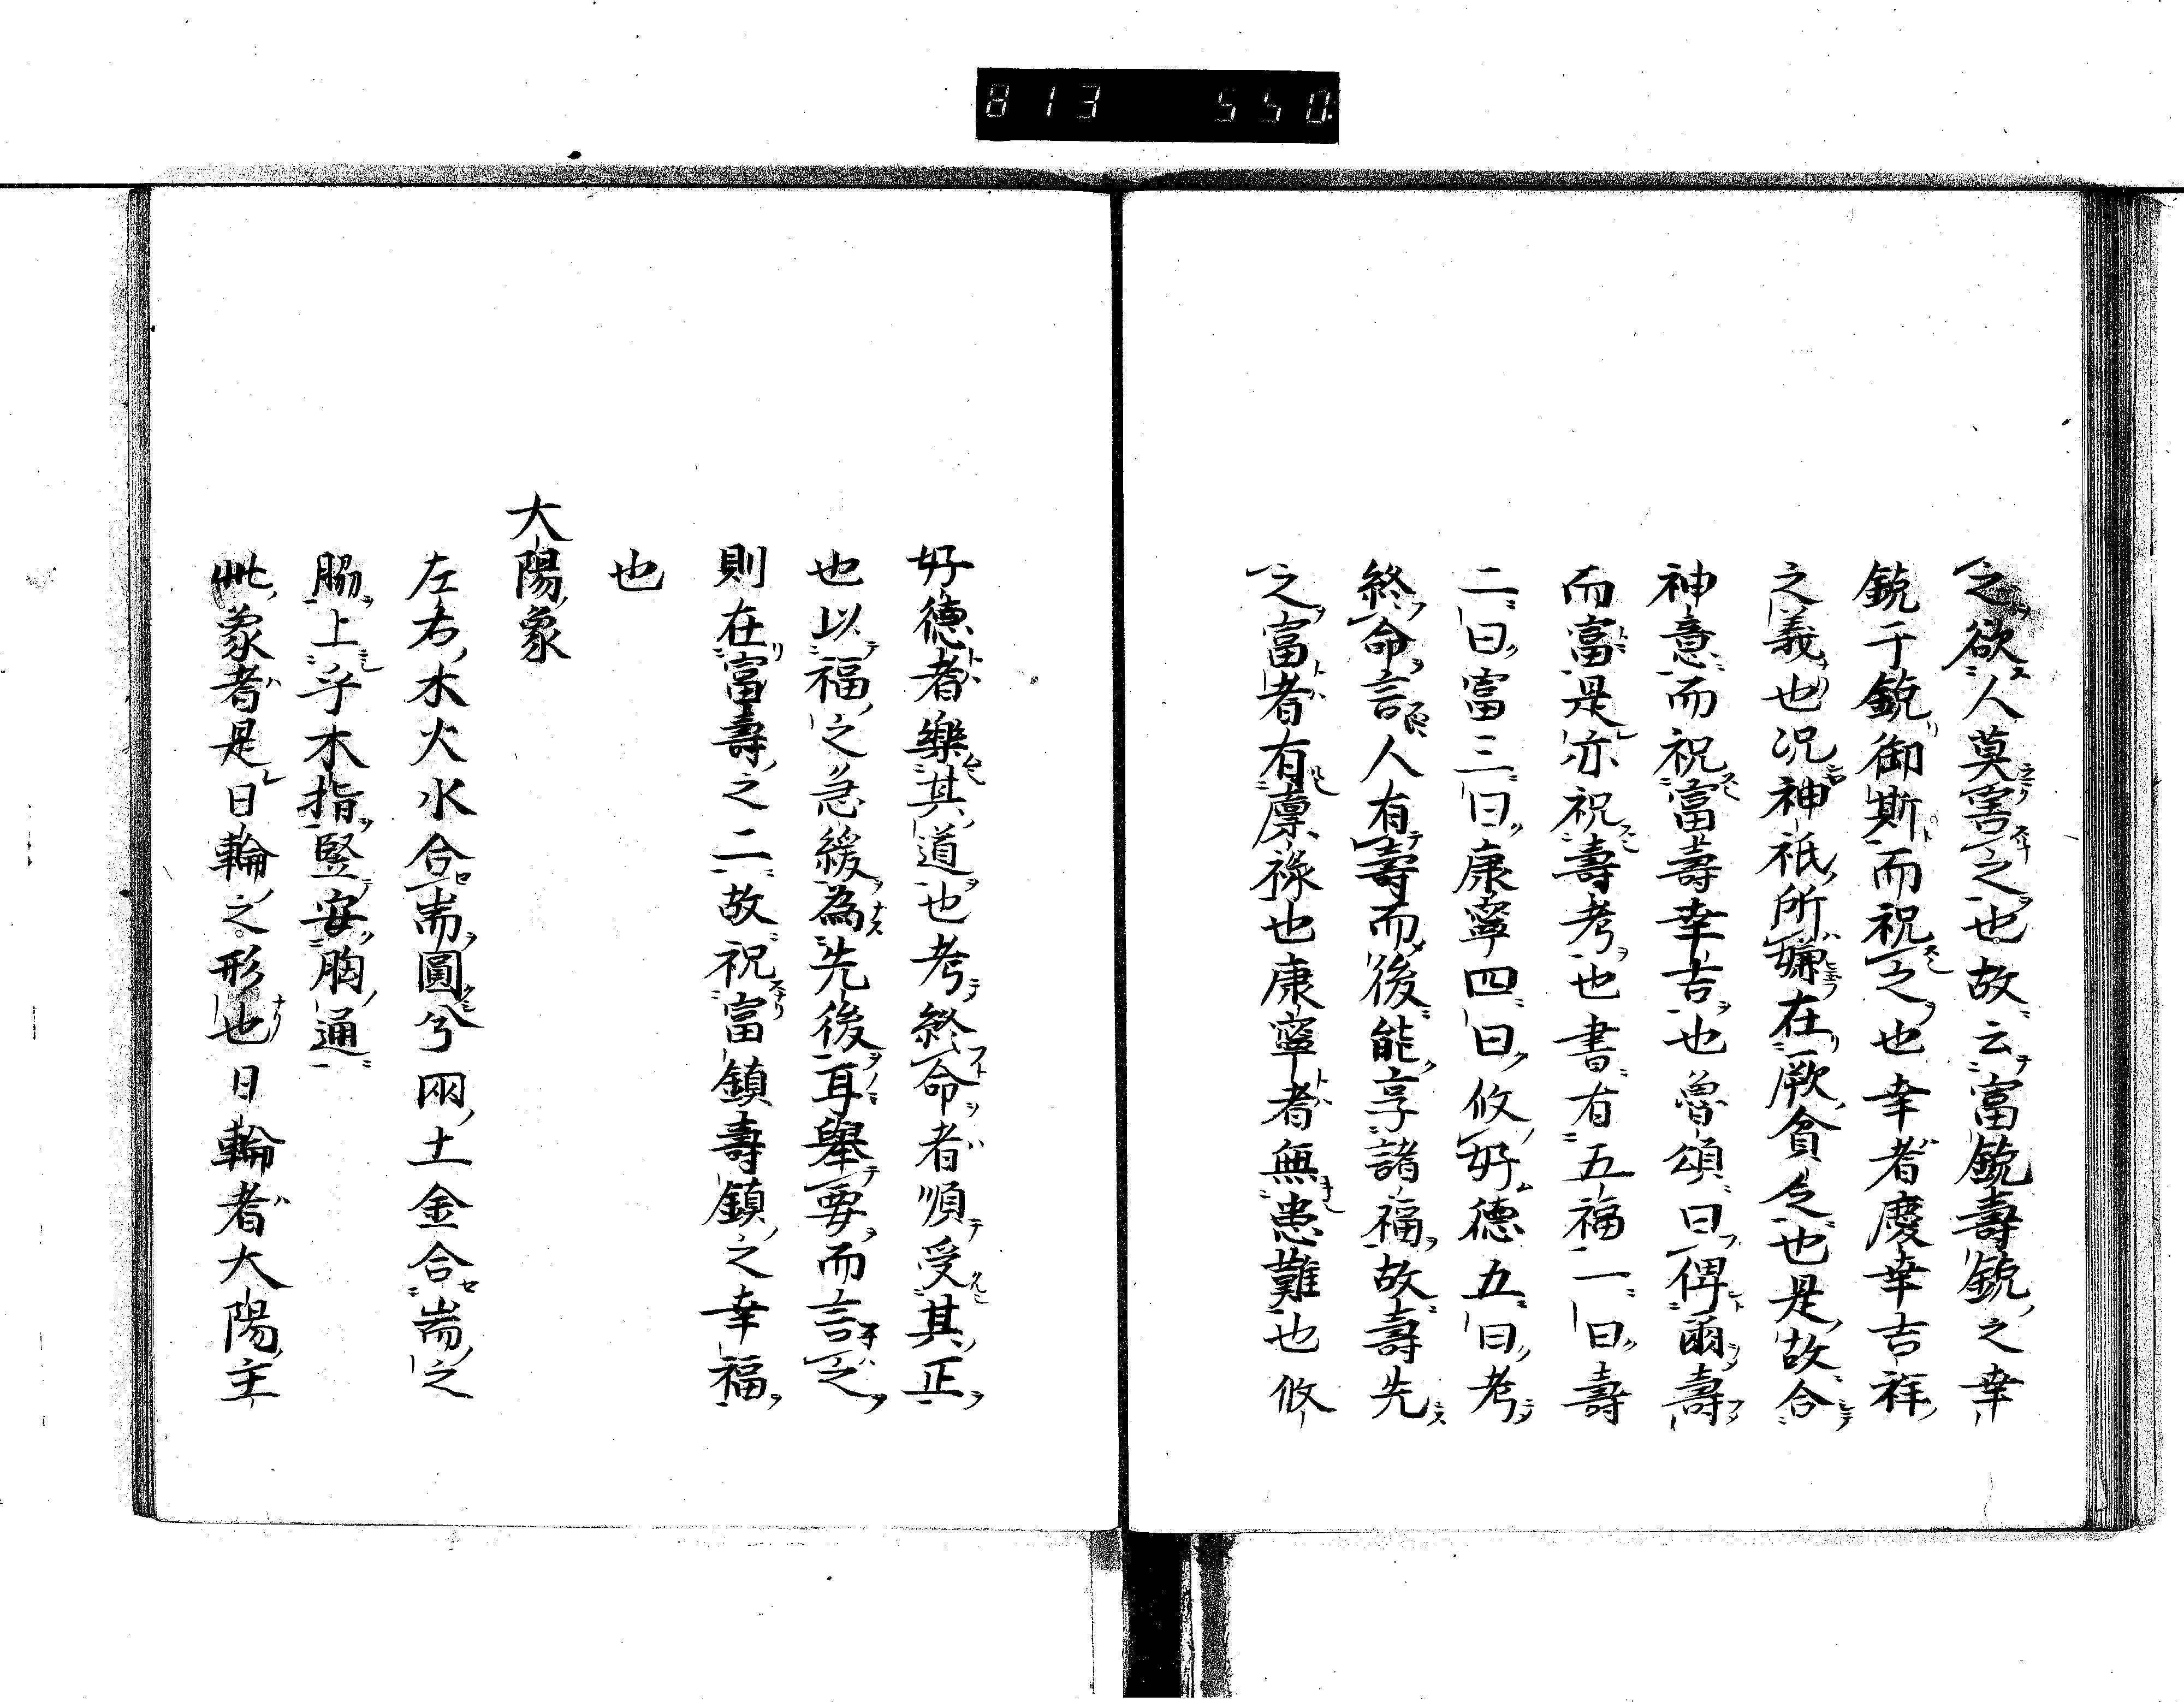 813 550.
之欲人莫害之也故云富鋭壽鋭之幸
鋭于鋭御斯而祝之也幸者慶幸吉祥
之義也况神祇所嫌在厥貪之也是故合
神意而祝富壽幸吉也魯頌曰俾爾壽
而富是亦祝壽考也書有五福一曰壽
二曰富三曰康寧四曰攸好德五曰考
終命言人有壽而後能享諸福故壽先
之富者有廩祿也康寧者無患難也攸
好德者樂其道也考終命者順受其正
也以福之急緩為先後耳舉要而言之
則在富壽之二故祝富鎮壽鎮之幸福
也
大陽象
左右木火水合耑圓兮兩土金合耑之
脇上乎木指竪安胸通
此象者是日輪之形也日輪者大陽主